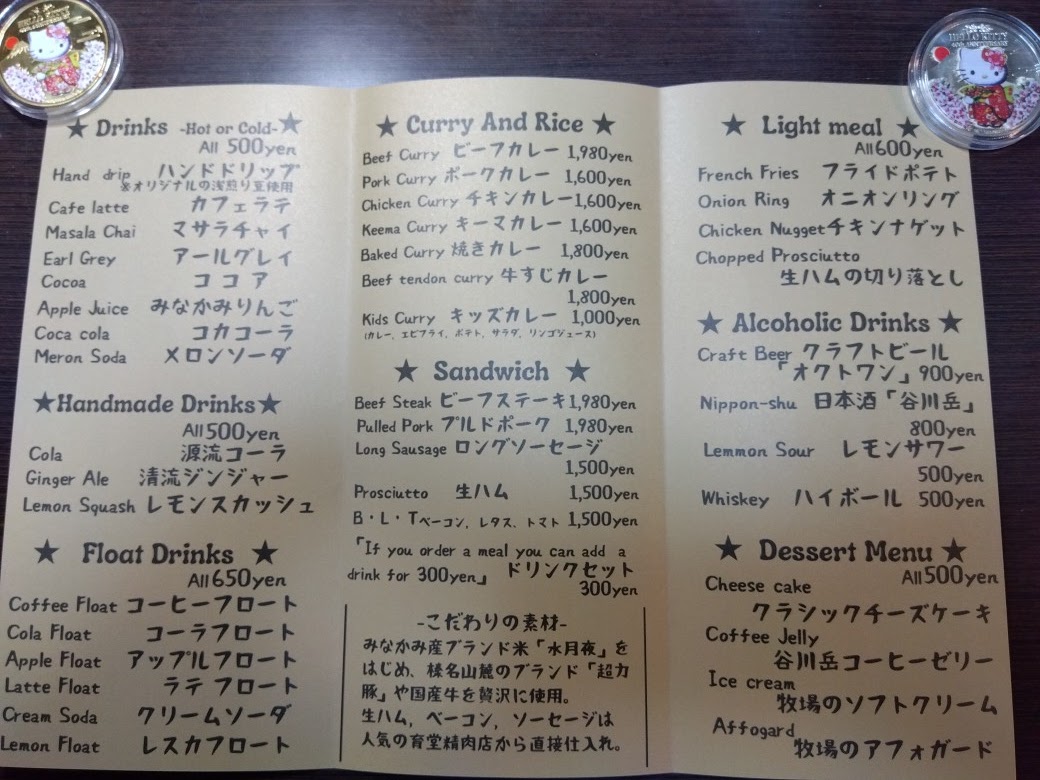 HELLO KITTY
HELLO KITTY
40TH ANNIVERSARY
★ Drinks -Hot or Cold- ★
All 500yen
Hand drip ハンドドリップ
※オリジナルの浅煎り豆使用
Cafe latte カフェラテ
Masala Chai マサラチャイ
Earl Grey アールグレイ
Cocoa ココア
Apple Juice みなかみりんご
Coca cola コカコーラ
Meron Soda メロンソーダ
★Handmade Drinks★
All500yen
Cola 源流コーラ
Ginger Ale 清流ジンジャー
Lemon Squash レモンスカッシュ
★ Float Drinks ★
All650yen
Coffee Float コーヒーフロート
Cola Float コーラフロート
Apple Float アップルフロート
Latte Float ラテフロート
Cream Soda クリームソーダ
Lemon Float レスカフロート
★ Curry And Rice ★
Beef Curry ビーフカレー 1,980yen
Pork Curry ポークカレー 1,600yen
Chicken Curry チキンカレー1,600yen
Keema Curry キーマカレー 1,600yen
Baked Curry 焼きカレー 1,800yen
Beef tendon curry 牛すじカレー
1,800yen
Kids Curry キッズカレー 1,000yen
(カレー、エビフライ、ポテト、サラダ、リンゴジュース)
★ Sandwich ★
Beef Steak ビーフステーキ1,980yen
Pulled Pork プルドポーク 1,980yen
Long Sausage ロングソーセージ
1,500yen
Prosciutto 生ハム 1,500yen
B・L・Tベーコン、レタス、トマト 1,500yen
「If you order a meal you can add a
drink for 300yen」 ドリンクセット
300yen
-こだわりの素材-
みなかみ産ブランド米「水月夜」を
はじめ、榛名山麓のブランド「超力
豚」や国産牛を贅沢に使用。
生ハム、ベーコン、ソーセージは
人気の育堂精肉店から直接仕入れ。
★ Light meal ★
All600yen
French Fries フライドポテト
Onion Ring オニオンリング
Chicken Nuggetチキンナゲット
Chopped Prosciutto
生ハムの切り落とし
★ Alcoholic Drinks ★
Craft Beer クラフトビール
「オクトワン」900yen
Nippon-shu 日本酒「谷川岳」
800yen
Lemmon Sour レモンサワー
500yen
Whiskey ハイボール 500yen
★ Dessert Menu ★
All500yen
Cheese cake
クラシックチーズケーキ
Coffee Jelly
谷川岳コーヒーゼリー
Ice cream
牧場のソフトクリーム
Affogard
牧場のアフォガード